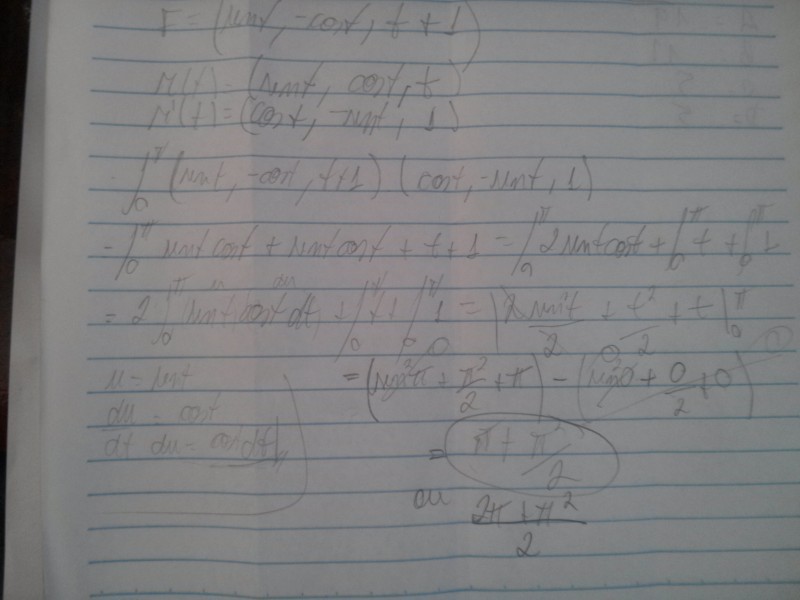 F = (sent, -cost, t + 1)
r(t) = (sent, cost, t)
r'(t) = (cost, -sent, 1)
∫₀^π (sent, -cost, t+1) (cost, -sent, 1)
= ∫₀^π sent cost + sent cost + t + 1 = ∫₀^π 2 sent cost + ∫₀^π t + ∫₀^π 1
= 2 ∫₀^π sent cost dt + ∫₀^π t + ∫₀^π 1 = | 2 sen²t / 2 + t² / 2 + t |₀^π
u = sent
du = cost
dt du = cost dt
= (sen²π + π²/2 + π) - (sen²0 + 0/2 + 0)
= π + π²/2
ou 2π + π² / 2